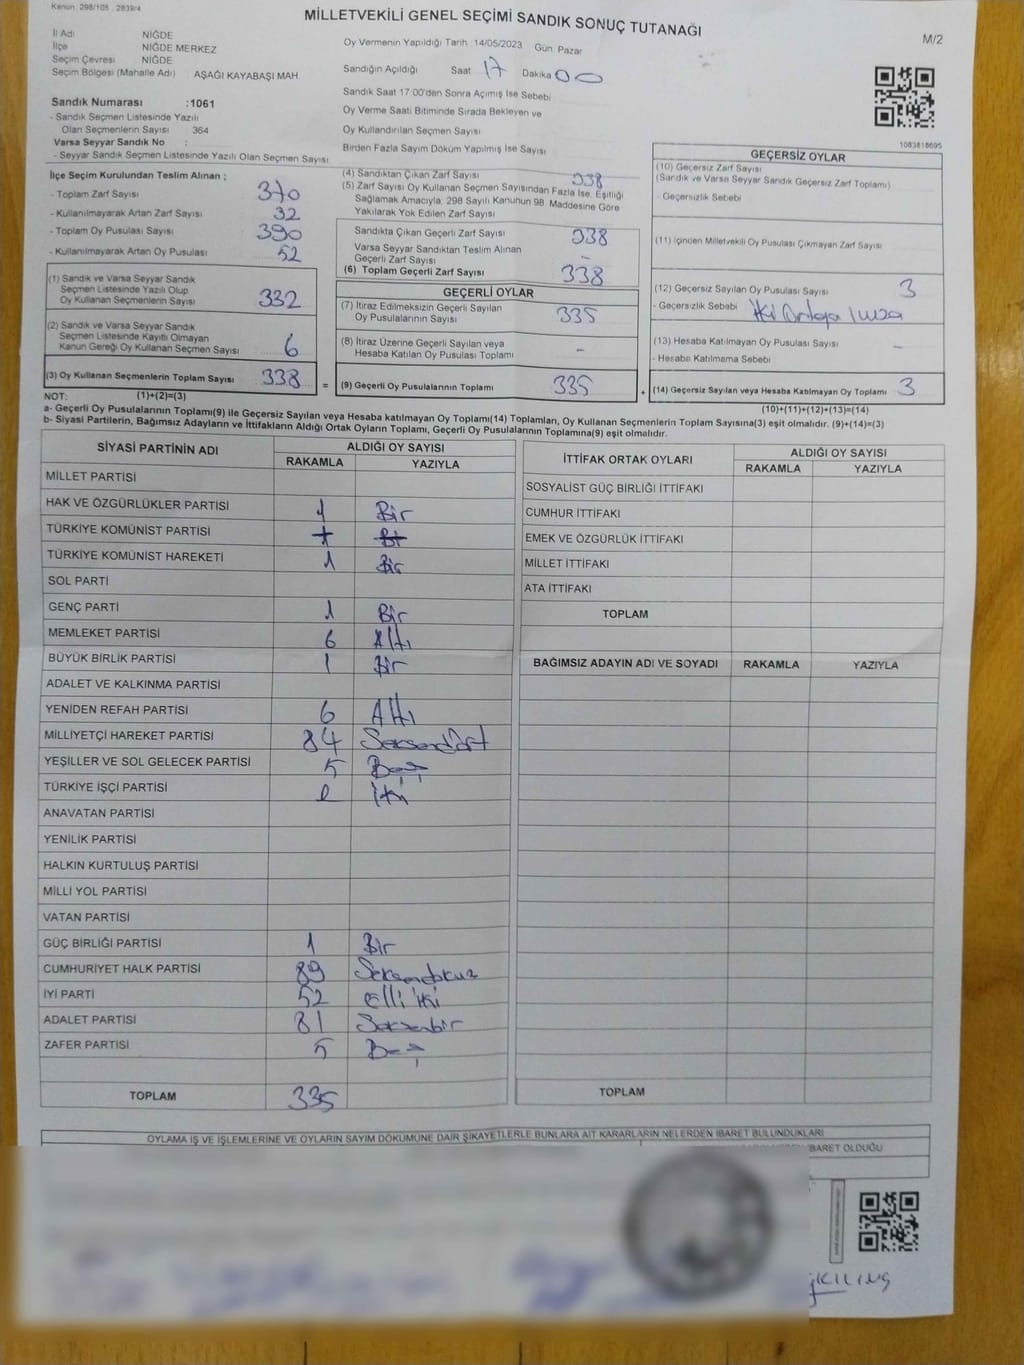 Kanun: 298/105 , 2839/4
MİLLETVEKİLİ GENEL SEÇİMİ SANDIK SONUÇ TUTANAĞI
M/2
İl Adı NİĞDE
İlçe NİĞDE MERKEZ
Seçim Çevresi NİĞDE
Seçim Bölgesi (Mahalle Adı) AŞAĞI KAYABAŞI MAH.
Sandık Numarası :1061
- Sandık Seçmen Listesinde Yazılı
Olan Seçmenlerin Sayısı : 364
Varsa Seyyar Sandık No :
- Seyyar Sandık Seçmen Listesinde Yazılı Olan Seçmen Sayısı
Oy Vermenin Yapıldığı Tarih 14/05/2023 Gün Pazar
Sandığın Açıldığı Saat 17 Dakika 00
Sandık Saat 17.00'den Sonra Açımış İse Sebebi
Oy Verme Saati Bitiminde Sırada Bekleyen ve
Oy Kullandırılan Seçmen Sayısı
Birden Fazla Sayım Döküm Yapılmış İse Sayısı
1083818695
İlçe Seçim Kurulundan Teslim Alınan ;
- Toplam Zarf Sayısı 370
- Kullanılmayarak Artan Zarf Sayısı 32
- Toplam Oy Pusulası Sayısı 390
- Kullanılmayarak Artan Oy Pusulası 52
(1) Sandık ve Varsa Seyyar Sandık
Seçmen Listesinde Yazılı Olup
Oy Kullanan Seçmenlerin Sayısı 332
(2) Sandık ve Varsa Seyyar Sandık
Seçmen Listesinde Kayıtlı Olmayan
Kanun Gereği Oy Kullanan Seçmen Sayısı 6
(3) Oy Kullanan Seçmenlerin Toplam Sayısı 338
(4) Sandıktan Çıkan Zarf Sayısı 338
(5) Zarf Sayısı Oy Kullanan Seçmen Sayısından Fazla İse, Eşitliği
Sağlamak Amacıyla; 298 Sayılı Kanunun 98. Maddesine Göre
Yakılarak Yok Edilen Zarf Sayısı
Sandıkta Çıkan Geçerli Zarf Sayısı 338
Varsa Seyyar Sandıktan Teslim Alınan
Geçerli Zarf Sayısı -
(6) Toplam Geçerli Zarf Sayısı 338
GEÇERLİ OYLAR
(7) İtiraz Edilmeksizin Geçerli Sayılan
Oy Pusulalarının Sayısı 335
(8) İtiraz Üzerine Geçerli Sayılan veya
Hesaba Katılan Oy Pusulası Toplamı -
= (9) Geçerli Oy Pusulalarının Toplamı 335
GEÇERSİZ OYLAR
(10) Geçersiz Zarf Sayısı
(Sandık ve Varsa Seyyar Sandık Geçersiz Zarf Toplamı)
- Geçersizlik Sebebi
(11) İçinden Milletvekili Oy Pusulası Çıkmayan Zarf Sayısı
(12) Geçersiz Sayılan Oy Pusulası Sayısı 3
- Geçersizlik Sebebi İki Ortaya
(13) Hesaba Katılmayan Oy Pusulası Sayısı -
- Hesaba Katılmama Sebebi
+ (14) Geçersiz Sayılan veya Hesaba Katılmayan Oy Toplamı 3
NOT: (1)+(2)=(3)
(10)+(11)+(12)+(13)=(14)
a- Geçerli Oy Pusulalarının Toplamı(9) ile Geçersiz Sayılan veya Hesaba katılmayan Oy Toplamı(14) Toplamları, Oy Kullanan Seçmenlerin Toplam Sayısına(3) eşit olmalıdır. (9)+(14)=(3)
b- Siyasi Partilerin, Bağımsız Adayların ve İttifakların Aldığı Ortak Oyların Toplamı, Geçerli Oy Pusulalarının Toplamına(9) eşit olmalıdır.
SİYASİ PARTİNİN ADI ALDIĞI OY SAYISI
RAKAMLA YAZIYLA
MİLLET PARTİSİ
HAK VE ÖZGÜRLÜKLER PARTİSİ 1 Bir
TÜRKİYE KOMÜNİST PARTİSİ
TÜRKİYE KOMÜNİST HAREKETİ 1 Bir
SOL PARTİ
GENÇ PARTİ 1 Bir
MEMLEKET PARTİSİ 6 Altı
BÜYÜK BİRLİK PARTİSİ 1 Bir
ADALET VE KALKINMA PARTİSİ
YENİDEN REFAH PARTİSİ 6 Altı
MİLLİYETÇİ HAREKET PARTİSİ 84 Seksendört
YEŞİLLER VE SOL GELECEK PARTİSİ 5 Beş
TÜRKİYE İŞÇİ PARTİSİ 2 İki
ANAVATAN PARTİSİ
YENİLİK PARTİSİ
HALKIN KURTULUŞ PARTİSİ
MİLLİ YOL PARTİSİ
VATAN PARTİSİ
GÜÇ BİRLİĞİ PARTİSİ 1 Bir
CUMHURİYET HALK PARTİSİ 89 Seksendokuz
İYİ PARTİ 52 elli iki
ADALET PARTİSİ 81 Seksenbir
ZAFER PARTİSİ 5 Beş
TOPLAM 335
İTTİFAK ORTAK OYLARI ALDIĞI OY SAYISI
RAKAMLA YAZIYLA
SOSYALİST GÜÇ BİRLİĞİ İTTİFAKI
CUMHUR İTTİFAKI
EMEK VE ÖZGÜRLÜK İTTİFAKI
MİLLET İTTİFAKI
ATA İTTİFAKI
TOPLAM
BAĞIMSIZ ADAYIN ADI VE SOYADI RAKAMLA YAZIYLA
TOPLAM
OYLAMA İŞ VE İŞLEMLERİNE VE OYLARIN SAYIM DÖKÜMÜNE DAİR ŞİKAYETLERLE BUNLARA AİT KARARLARIN NELERDEN İBARET BULUNDUKLARI
İBARET OLDUĞU